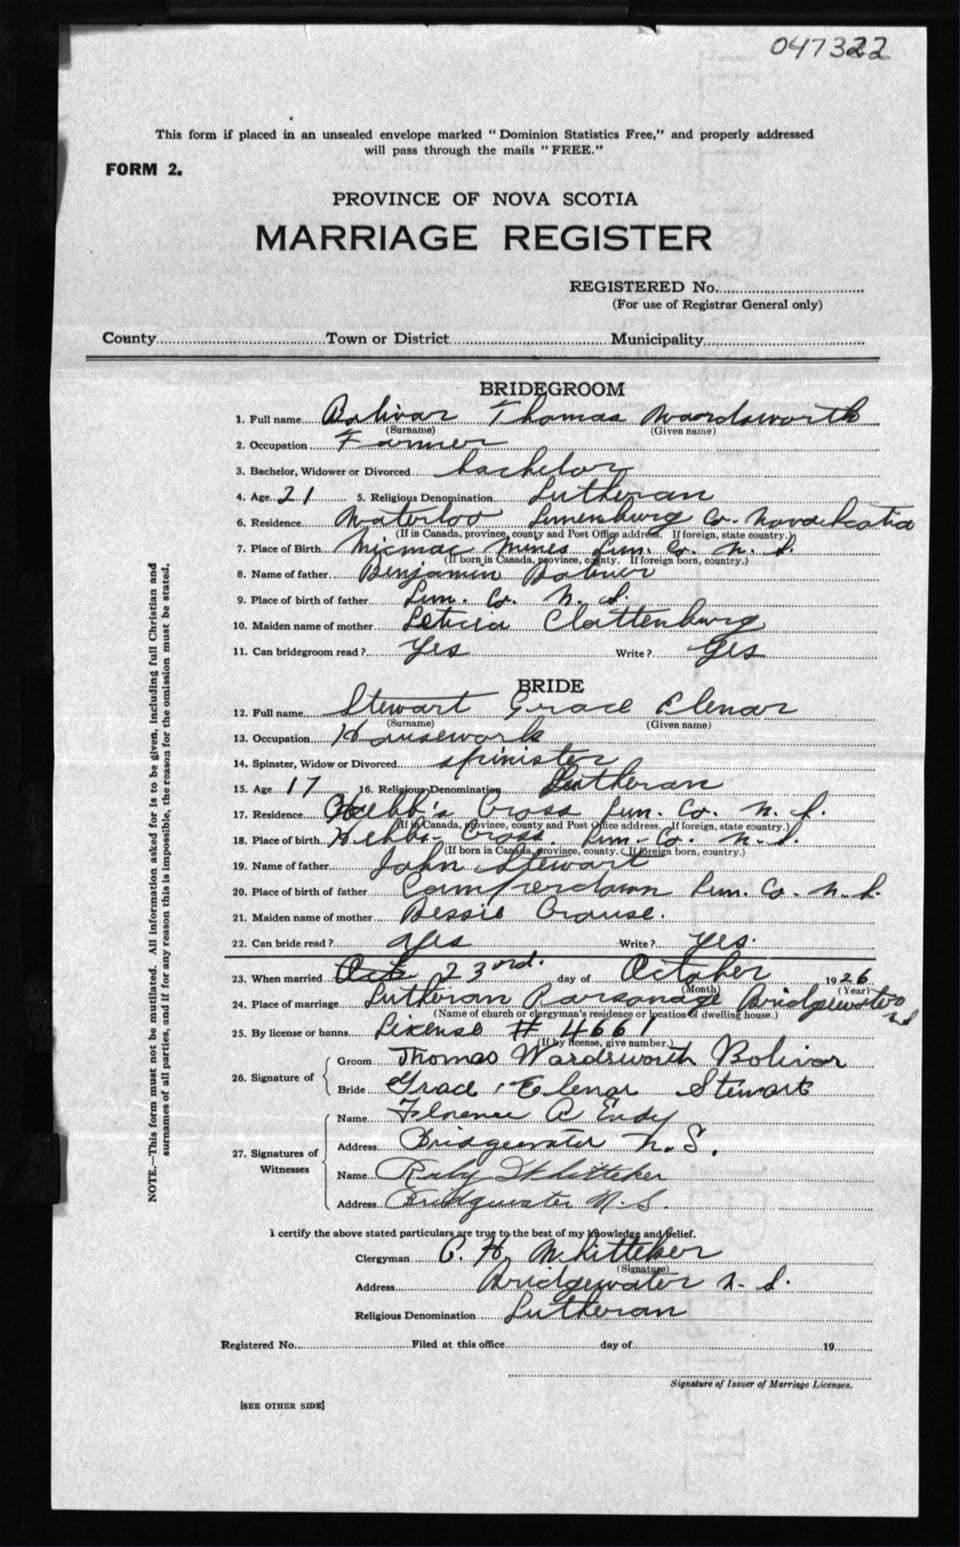 047322
This form if placed in an unsealed envelope marked "Dominion Statistics Free," and properly addressed
will pass through the mails "FREE."
FORM 2.
PROVINCE OF NOVA SCOTIA
MARRIAGE REGISTER
REGISTERED No.
(For use of Registrar General only)
County Town or District Municipality
BRIDEGROOM
1. Full name Bolivar Thomas Wardsworth
(Surname) (Given name)
2. Occupation Farmer
3. Bachelor, Widower or Divorced bachelor
4. Age 21 5. Religious Denomination Lutheran
6. Residence Waterloo Lunenburg Co. Nova Scotia
(If in Canada, province, county and Post Office address. If foreign, state country.)
7. Place of Birth Micmac Mines Lun. Co. N. S.
(If born in Canada, province, county. If foreign born, country.)
8. Name of father Benjamin
9. Place of birth of father Lun. Co. N. S.
10. Maiden name of mother Leticia Clattenburg
11. Can bridegroom read? Yes Write? Yes
BRIDE
12. Full name Stewart Grace Elenar
(Surname) (Given name)
13. Occupation Housework
14. Spinster, Widow or Divorced spinister
15. Age 17 16. Religious Denomination Lutheran
17. Residence Hebb's Cross Lun. Co. N. S.
(If in Canada, province, county and Post Office address. If foreign, state country.)
18. Place of birth Hebbs Cross. Lun. Co. N. S.
(If born in Canada, province, county. If foreign born, country.)
19. Name of father John Stewart
20. Place of birth of father Camperdown Lun. Co. N. S.
21. Maiden name of mother Bessie Crouse.
22. Can bride read? Yes Write? yes.
23. When married Oct 23rd. day of October 1926
(Month) (Year)
24. Place of marriage Lutheran Parsonage Bridgewater NS
(Name of church or clergyman's residence or location of dwelling house.)
25. By license or banns License # 4661
(If by license, give number.)
26. Signature of Groom Thomas Wardsworth Bolivar
Bride Grace Elenar Stewart
27. Signatures of Witnesses Name Florence A Endy
Address Bridgewater N. S.
Name Ruby Whitteker
Address Bridgewater N. S.
I certify the above stated particulars are true to the best of my knowledge and belief.
Clergyman C. H. Whitteker
(Signature)
Address Bridgewater N. S.
Religious Denomination Lutheran
Registered No. Filed at this office day of 19
Signature of Issuer of Marriage Licenses.
[SEE OTHER SIDE]
NOTE.—This form must not be mutilated. All information asked for is to be given, including full Christian and
surnames of all parties, and if for any reason this is impossible, the reason for the omission must be stated.